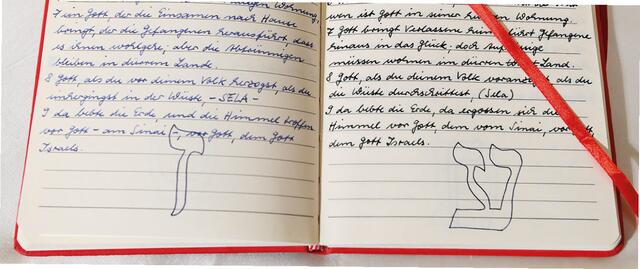 7 ein Gott, der die Einsamen nach Hause
bringt, der die Gefangenen herausführt, dass
es ihnen wohlgehe; aber die Abtrünnigen
bleiben in dürrem Lande.
8 Gott, als du vor deinem Volk herzogst, als du
einhergingst in der Wüste, - SELA -
9 da bebte die Erde und die Himmel troffen
vor Gott - am Sinai - vor Gott, dem Gott
Israels.
ז
wen ist Gott in seiner Wohnung.
7 Gott bringt Verlassene führt Gefangene
hinaus in das Glück; doch
müssen wohnen im dürren Land.
8 Gott, als du deinem Volke als du
die Wüste durchschrittest, (Sela)
9 da bebte die Erde, da ergossen sich die
Himmel vor Gott, dem vom Sinai, vor
dem Gott Israels.
צ